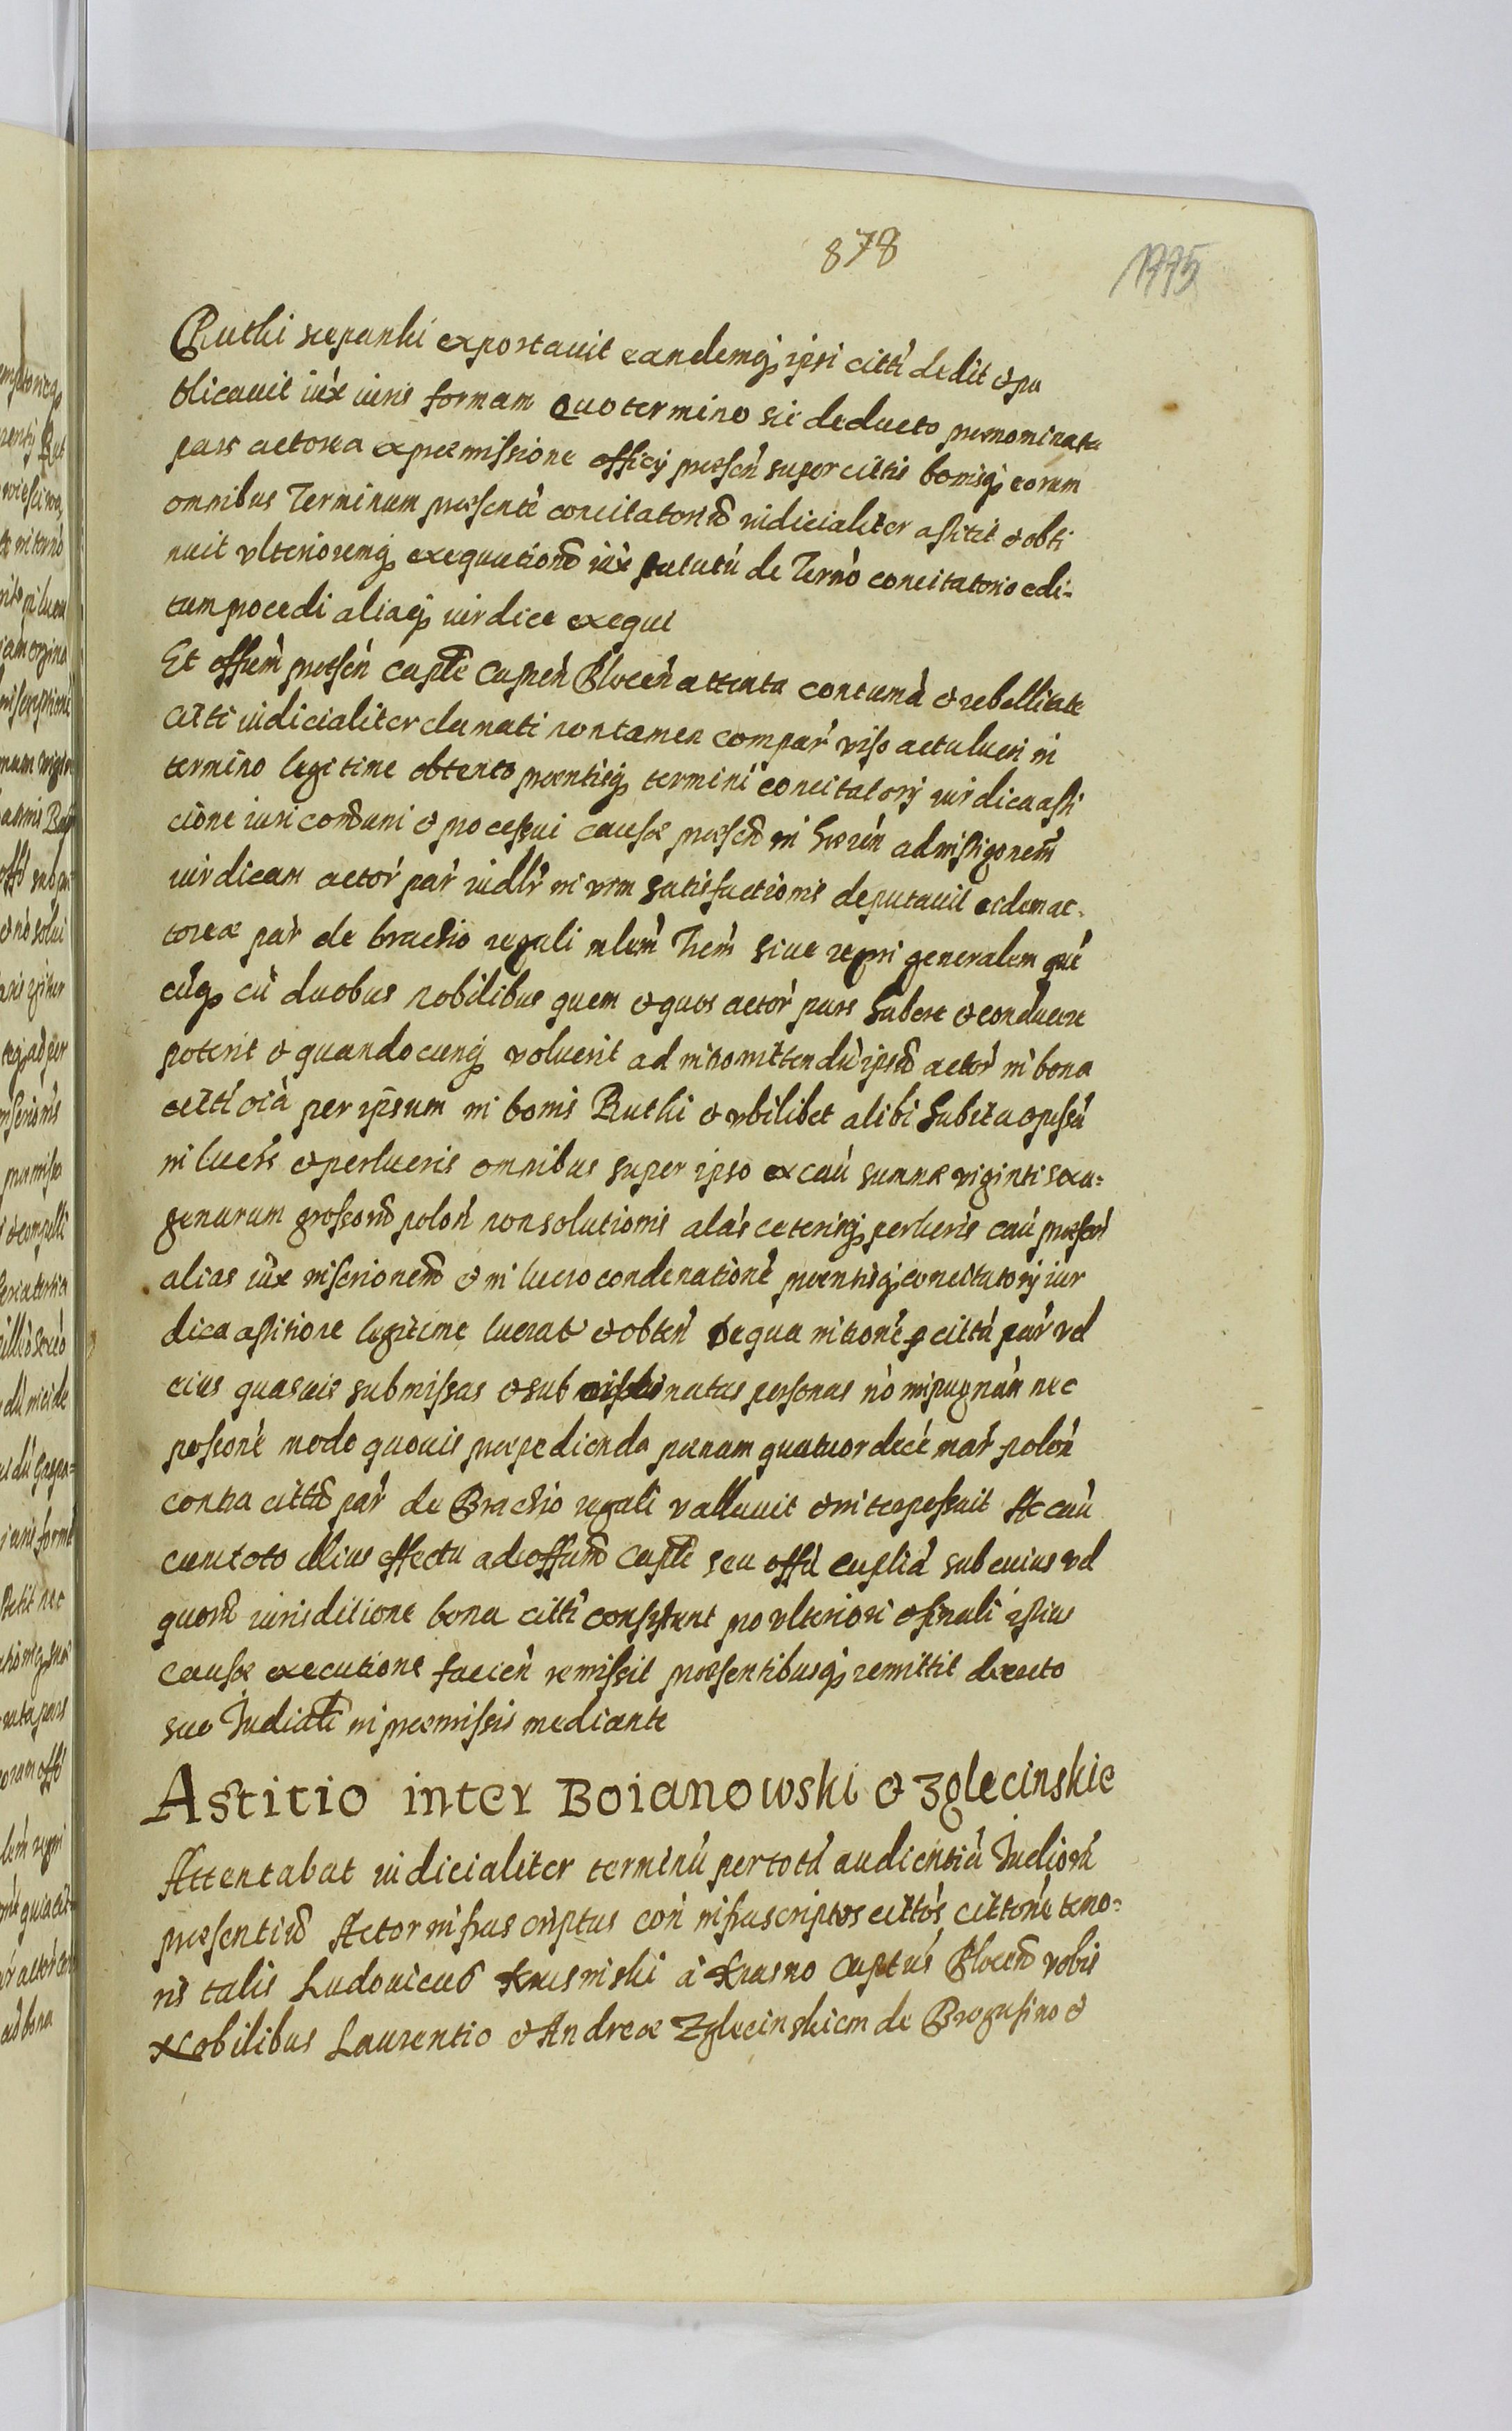 878
1775
Rutki szepanki exportauit eandemq ipsi citti dedit et pu
blicauit iux iuris formam Quo termino sic deducto prenominata
pars actorea ex præmissione officij præsen super cittis bonisq eorum
omnibus Terminum præsente concitatorium iudicialiter astitit et obti
nuit vlterioremq exequutionem iux statutu de Termo concitatorio edi-
tum procedi aliaq iurdice exequi
Et offium præsen Captle Castren Plocen attenta contuma et rebellitate
Citti iudicialiter clamati non tamen compar viso actu lucri in
termino legitime obtento præntisq termini concitatorij iurdica asti
cione iuri communi et processui causæ præsen in hæren admissionem
iurdicam actor par iudlr in vim satisfactionis deputauit eidem ac-
toreæ par de brachio regali mlem Trem siue regni generalem que
cuq cu duobus nobilibus quem et quos actor pars habere et conducere
poterit et quandocunq voluerit ad intromittendu ipsum actor in bona
citti oia per ipsum in bonis Rutki et vbilibet alibi habita et possessa
in lucris et perlucris omnibus super ipso ex cau summæ viginti sexa-
genarum grossorum polon non solutionis alas ceterisq perlucris cau præsen
alias iux inscrionem et in lucro condenatione præntisq concitatorij iur
dica astitione legitime lucrat et obten De qua intione p citta par vel
eius quasuis submissas et subordinatas personas no impugnan nec
possone modo quouis præpedienda pænam quatuordece mar polon
contra citta par de Brachio regali vallauit et interposuit Ac cau
cum toto illius effectu ad offium Captle seu offa Captlia sub cuius vel
quorum iurisditione bona citti consistunt pro vlteriori et finali istius
causæ executione facien remissit præsentibusq remittit decreto
suo Iudicialι in præmissis mediante
Astitio inter Boianowski et Zglecinskie
Attentabat iudicialiter terminu per totu audientiu Iudiciorum
præsentium Actor infrascriptus con infrascriptos cittos cittone teno-
ris talis Ludouicus Krasinski a Krasno Captus Plocen vobis
Nobilibus Laurentio et Andreæ Zglecinskiem de Brogusino et